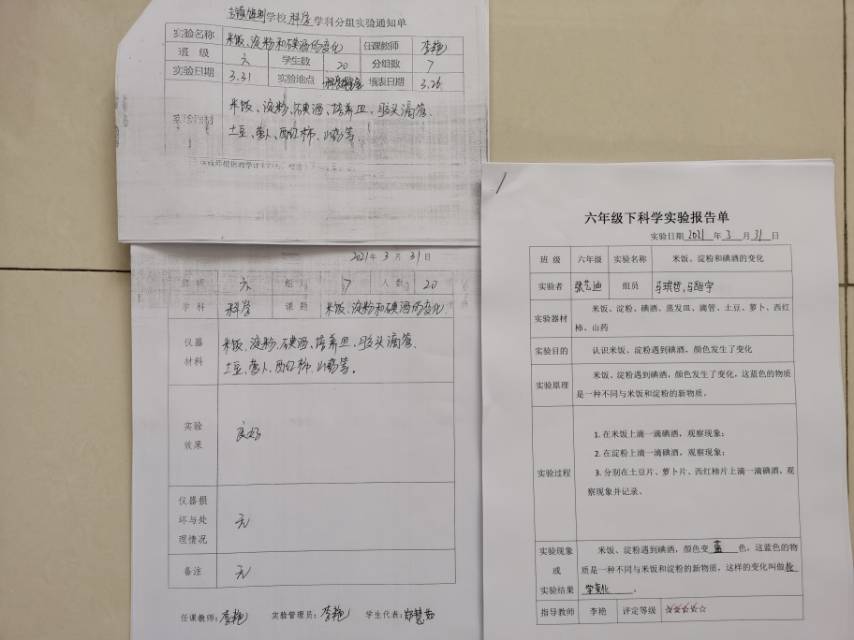 学校科学学科分组实验通知单
实验名称 米饭、淀粉和碘酒的变化 任课教师 李艳
班 级 六 学生数 20 分组数 7
实验日期 3.31 实验地点 填表日期 3.26
米饭、淀粉、碘酒、培养皿、胶头滴管、
土豆、萝卜、西红柿、山药等
2021年 3 月 31 日
六 7 人 数 20
学 科 科学 课 题 米饭、淀粉和碘酒的变化
仪器
材料
米饭、淀粉、碘酒、培养皿、胶头滴管、
土豆、萝卜、西红柿、山药等。
实验
效果
良好
仪器损
坏与处
理情况
无
备注 无
任课教师:李艳 实验管理员:李艳 学生代表:
六年级下科学实验报告单
实验日期 2021 年 3 月 31 日
班 级 六年级 实验名称 米饭、淀粉和碘酒的变化
实验者 张艺迪 组员
实验器材
米饭、淀粉、碘酒、蒸发皿、滴管、土豆、萝卜、西红
柿、山药
实验目的 认识米饭、淀粉遇到碘酒,颜色发生了变化
实验原理
米饭、淀粉遇到碘酒,颜色发生了变化,这蓝色的物质
是一种不同与米饭和淀粉的新物质。
实验过程
1.在米饭上滴一滴碘酒,观察现象;
2.在淀粉上滴一滴碘酒,观察现象;
3.分别在土豆片、萝卜片、西红柿片上滴一滴碘酒,观
察现象并记录。
实验现象
或
实验结果
米饭、淀粉遇到碘酒,颜色变 蓝 色,这蓝色的物
质是一种不同与米饭和淀粉的新物质,这样的变化叫做化
学变化 。
指导教师 李艳 评定等级 ☆☆☆☆☆